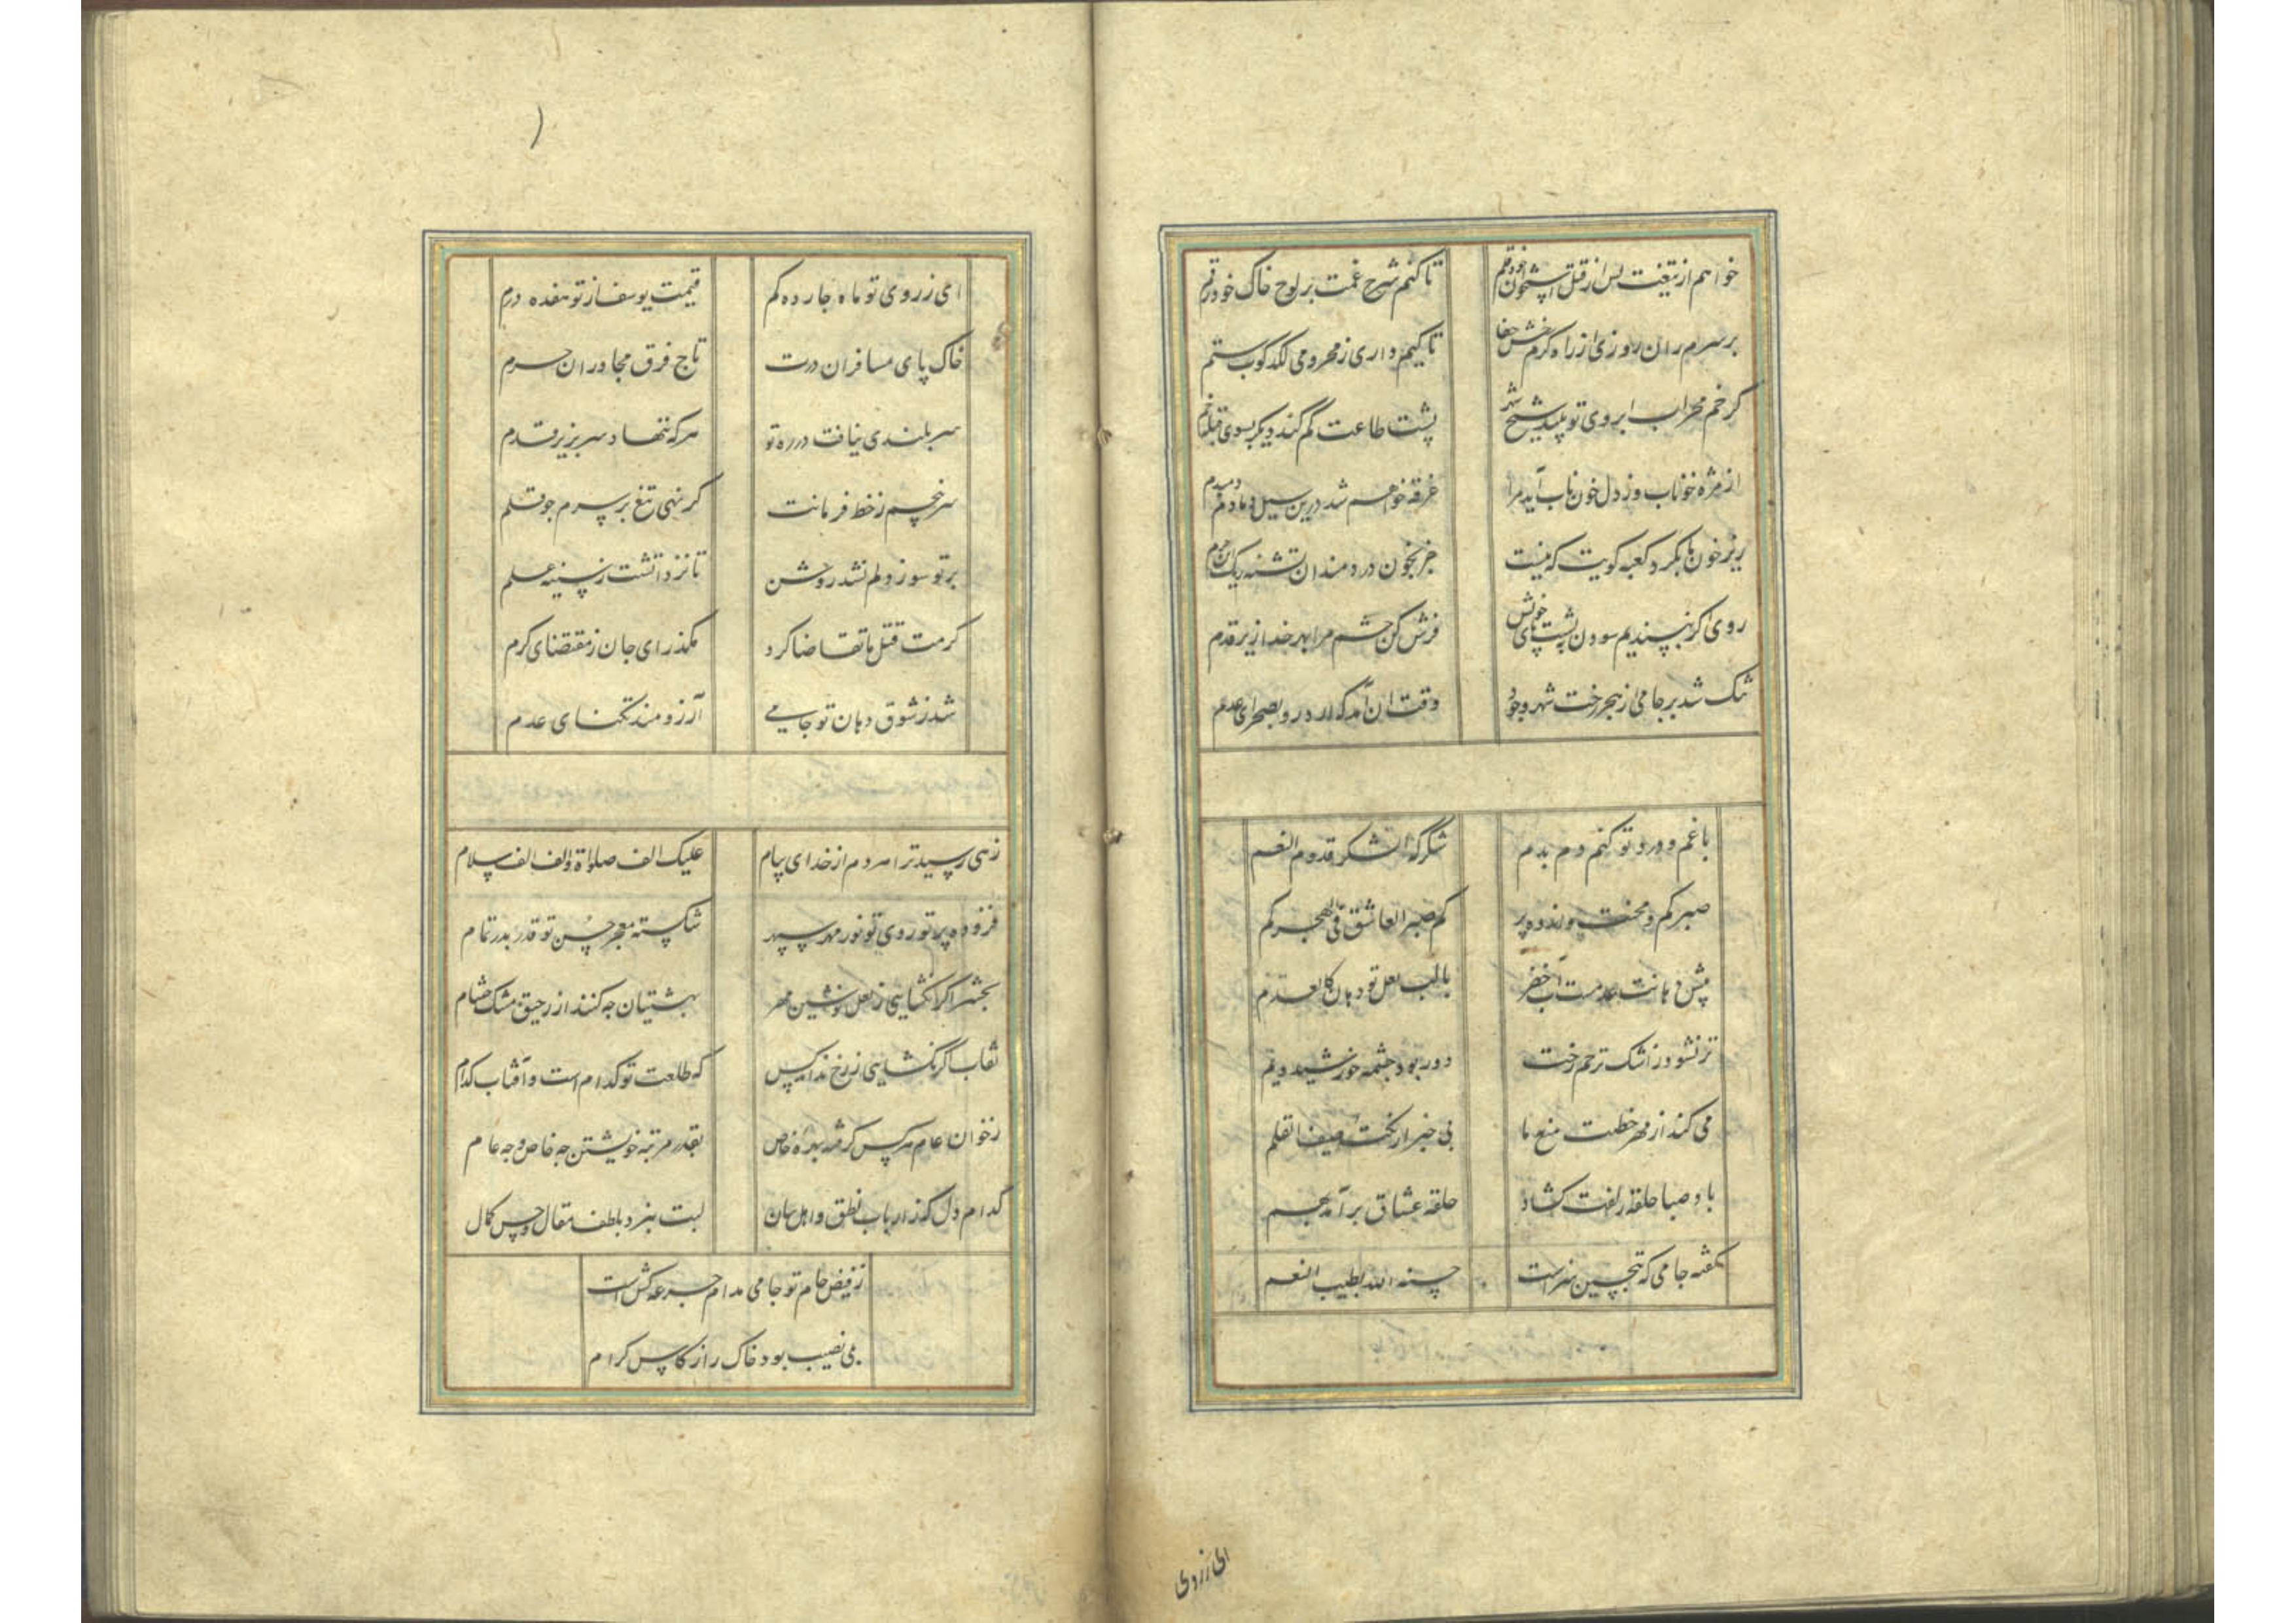 خواهم از تیغت پس از قتل استخوان خود قلم
تا کنم شرح غمت بر لوح خاک خود رقم
بر سرم ران روزی از راه کرم رخش جفا
تا کیم داری ز محرومی لکدکوب ستم
کر خم محراب ابروی تو بیند شیخ شهر
پشت طاعت کم کند دیکر بسوی قبله خم
از مژه خوناب وز دل خون ناب آید مرا
غرقه خواهم شد درین سیل دمادم دمبدم
ریز خون ما بکرد کعبه کویت که نیست
جز بخون دردمندان تشنه ریک آن حرم
روی اکر نپسندیم سودن بپشت پای خویش
فرش کن چشم مرا بهر خدا زیر قدم
تنک شد بر جامی از هجر رخت شهر وجود
وقت ان آمد که آرد رو بصحرای عدم
با غم و درد تو کنم دم بدم
شکر که الشکر قدوم النعم
صبر کم و محنت و اندوه پر
کم صبر العاشق فی الهجر کم
پیش دهانت عدمست آب خضر
با لب لعل تو دهان کالعدم
تر نشود ز اشک ترحم رخت
دور بود چشمه خورشید و نم
می کند از مهر خطت منع ما
بی خبر از نکته جف القلم
باد صبا حلقه زلفت کشاد
حلقه عشاق برآمد بهم
کفته جامی که بتحسین سزاست
حسنه الله بطیب النعم
ای ز روی
ای ز روی تو ماه چارده کم
قیمت یوسف از تو هفده درم
خاک پای مسافران درت
تاج فرق مجاوران حرم
سربلندی نیافت در ره تو
هر که ننهاد سر بزیر قدم
سر نپیچم ز خط فرمانت
کر نهی تیغ بر سرم چو قلم
بر تو سوز دلم نشد روشن
تا نزد آتشت ز سینه علم
کرمت قتل ما تقاضا کرد
مکذر ای جان ز مقتضای کرم
شد ز شوق دهان تو جامی
آرزومند تنکنای عدم
زهی رسیده ترا هر دم از خدای پیام
علیک الف صلواة و الف الف سلام
فزوده پرتو روی تو نور مهر سپهر
شکسته معجز حسن تو قدر بدر تمام
بحشر اکر نکشایی ز لعل نوشین مهر
بهشتیان چه کنند از رحیق مشک ختام
نقاب اکر نکشایی ز رخ نداند کس
که طلعت تو کدام است و آفتاب کدام
ز خوان عام هر کس کرفته بهره خاص
بقدر مرتبه خویشتن چه خاص و چه عام
کدام دل که ز ارباب نطق و اهل بیان
لبت نبرد بلطف مقال و حسن کمال
ز فیض جام تو جامی مدام جرعه کش است
بی نصیب بود خاک را ز کاس کرام